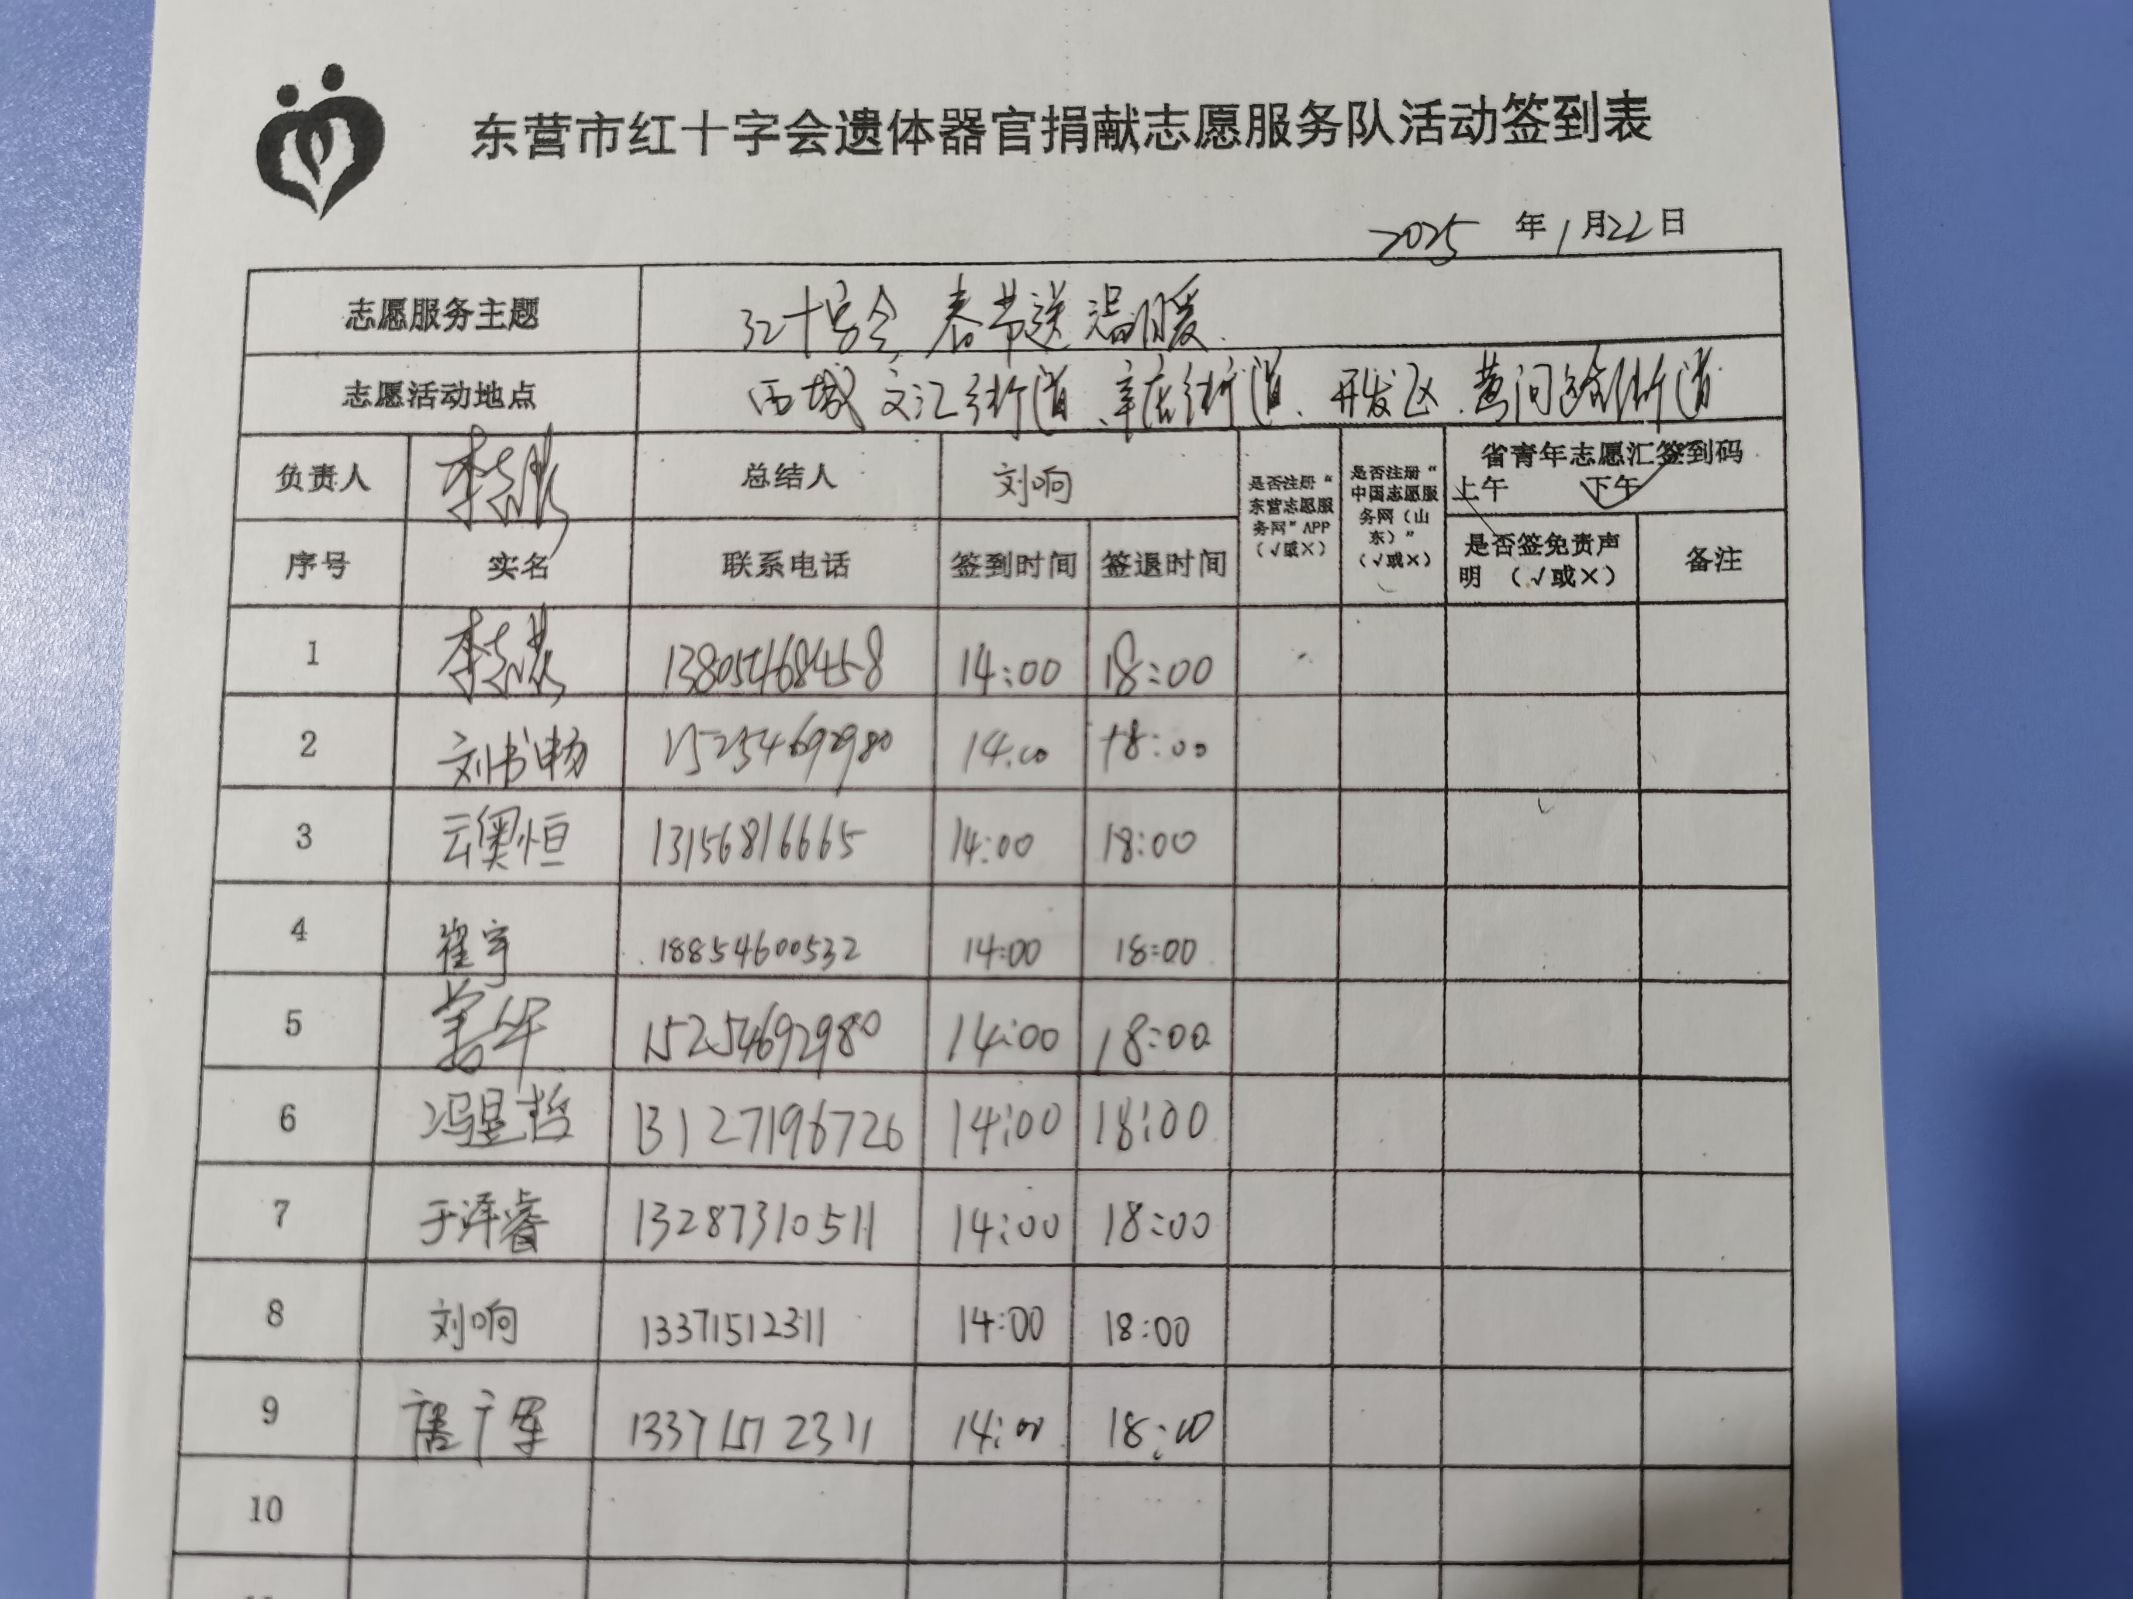 东营市红十字会遗体器官捐献志愿服务队活动签到表
2025 年 1 月 22 日
志愿服务主题 红十字会春节送温暖.
志愿活动地点 西城文汇街道、辛店街道、开发区.黄河路街道
负责人 总结人 刘响 是否注册“东营志愿服务网”APP（√或×） 是否注册“中国志愿服务网（山东）”（√或×） 省青年志愿汇签到码
上午 下午 √
序号 实名 联系电话 签到时间 签退时间 是否签免责声明 （√或×） 备注
1 13805468458 14:00 18:00
2 刘书畅 15254692980 14:00 18:00
3 云奥恒 13156816665 14:00 18:00
4 崔宇 18854600532 14:00 18:00
5 15254692980 14:00 18:00
6 冯昱哲 13127196726 14:00 18:00
7 于泽睿 13287310511 14:00 18:00
8 刘响 13371512311 14:00 18:00
9 广军 13371512311 14:00 18:00
10